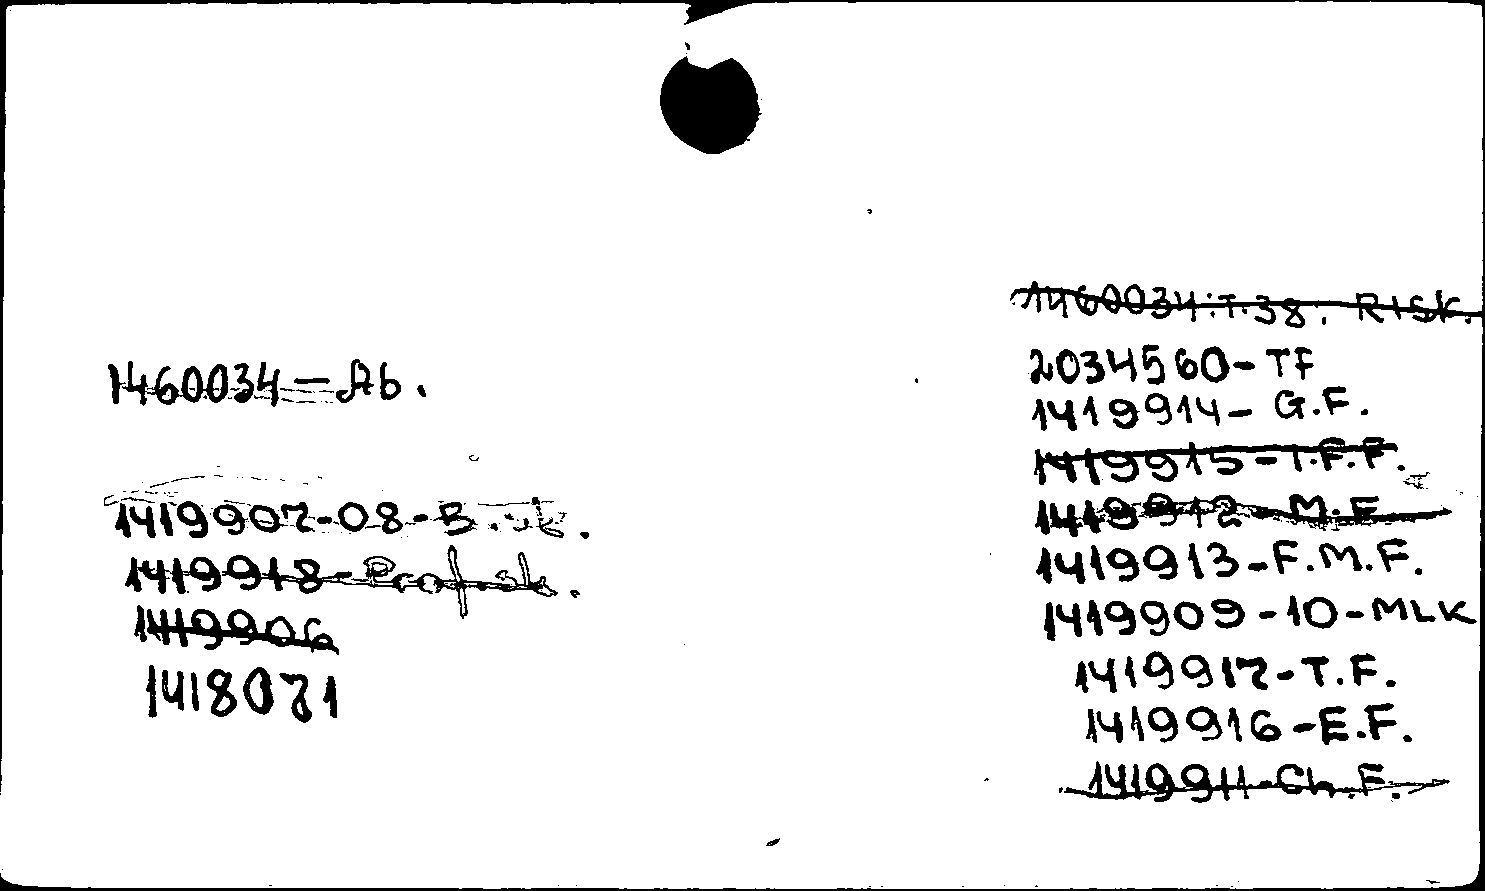 1460034 – Ab.
1419907-08-B.sk.
1419918-Prof.sk.
1419906
1418071
1460034.T.38. RISK.
2034560-TF
1419914- G.F.
1419915-I.F.F.
1419912- M.F
1419913-F.M.F.
1419909-10-MLK
1419917-T.F.
1419916-E.F.
1419911-Ch.F.